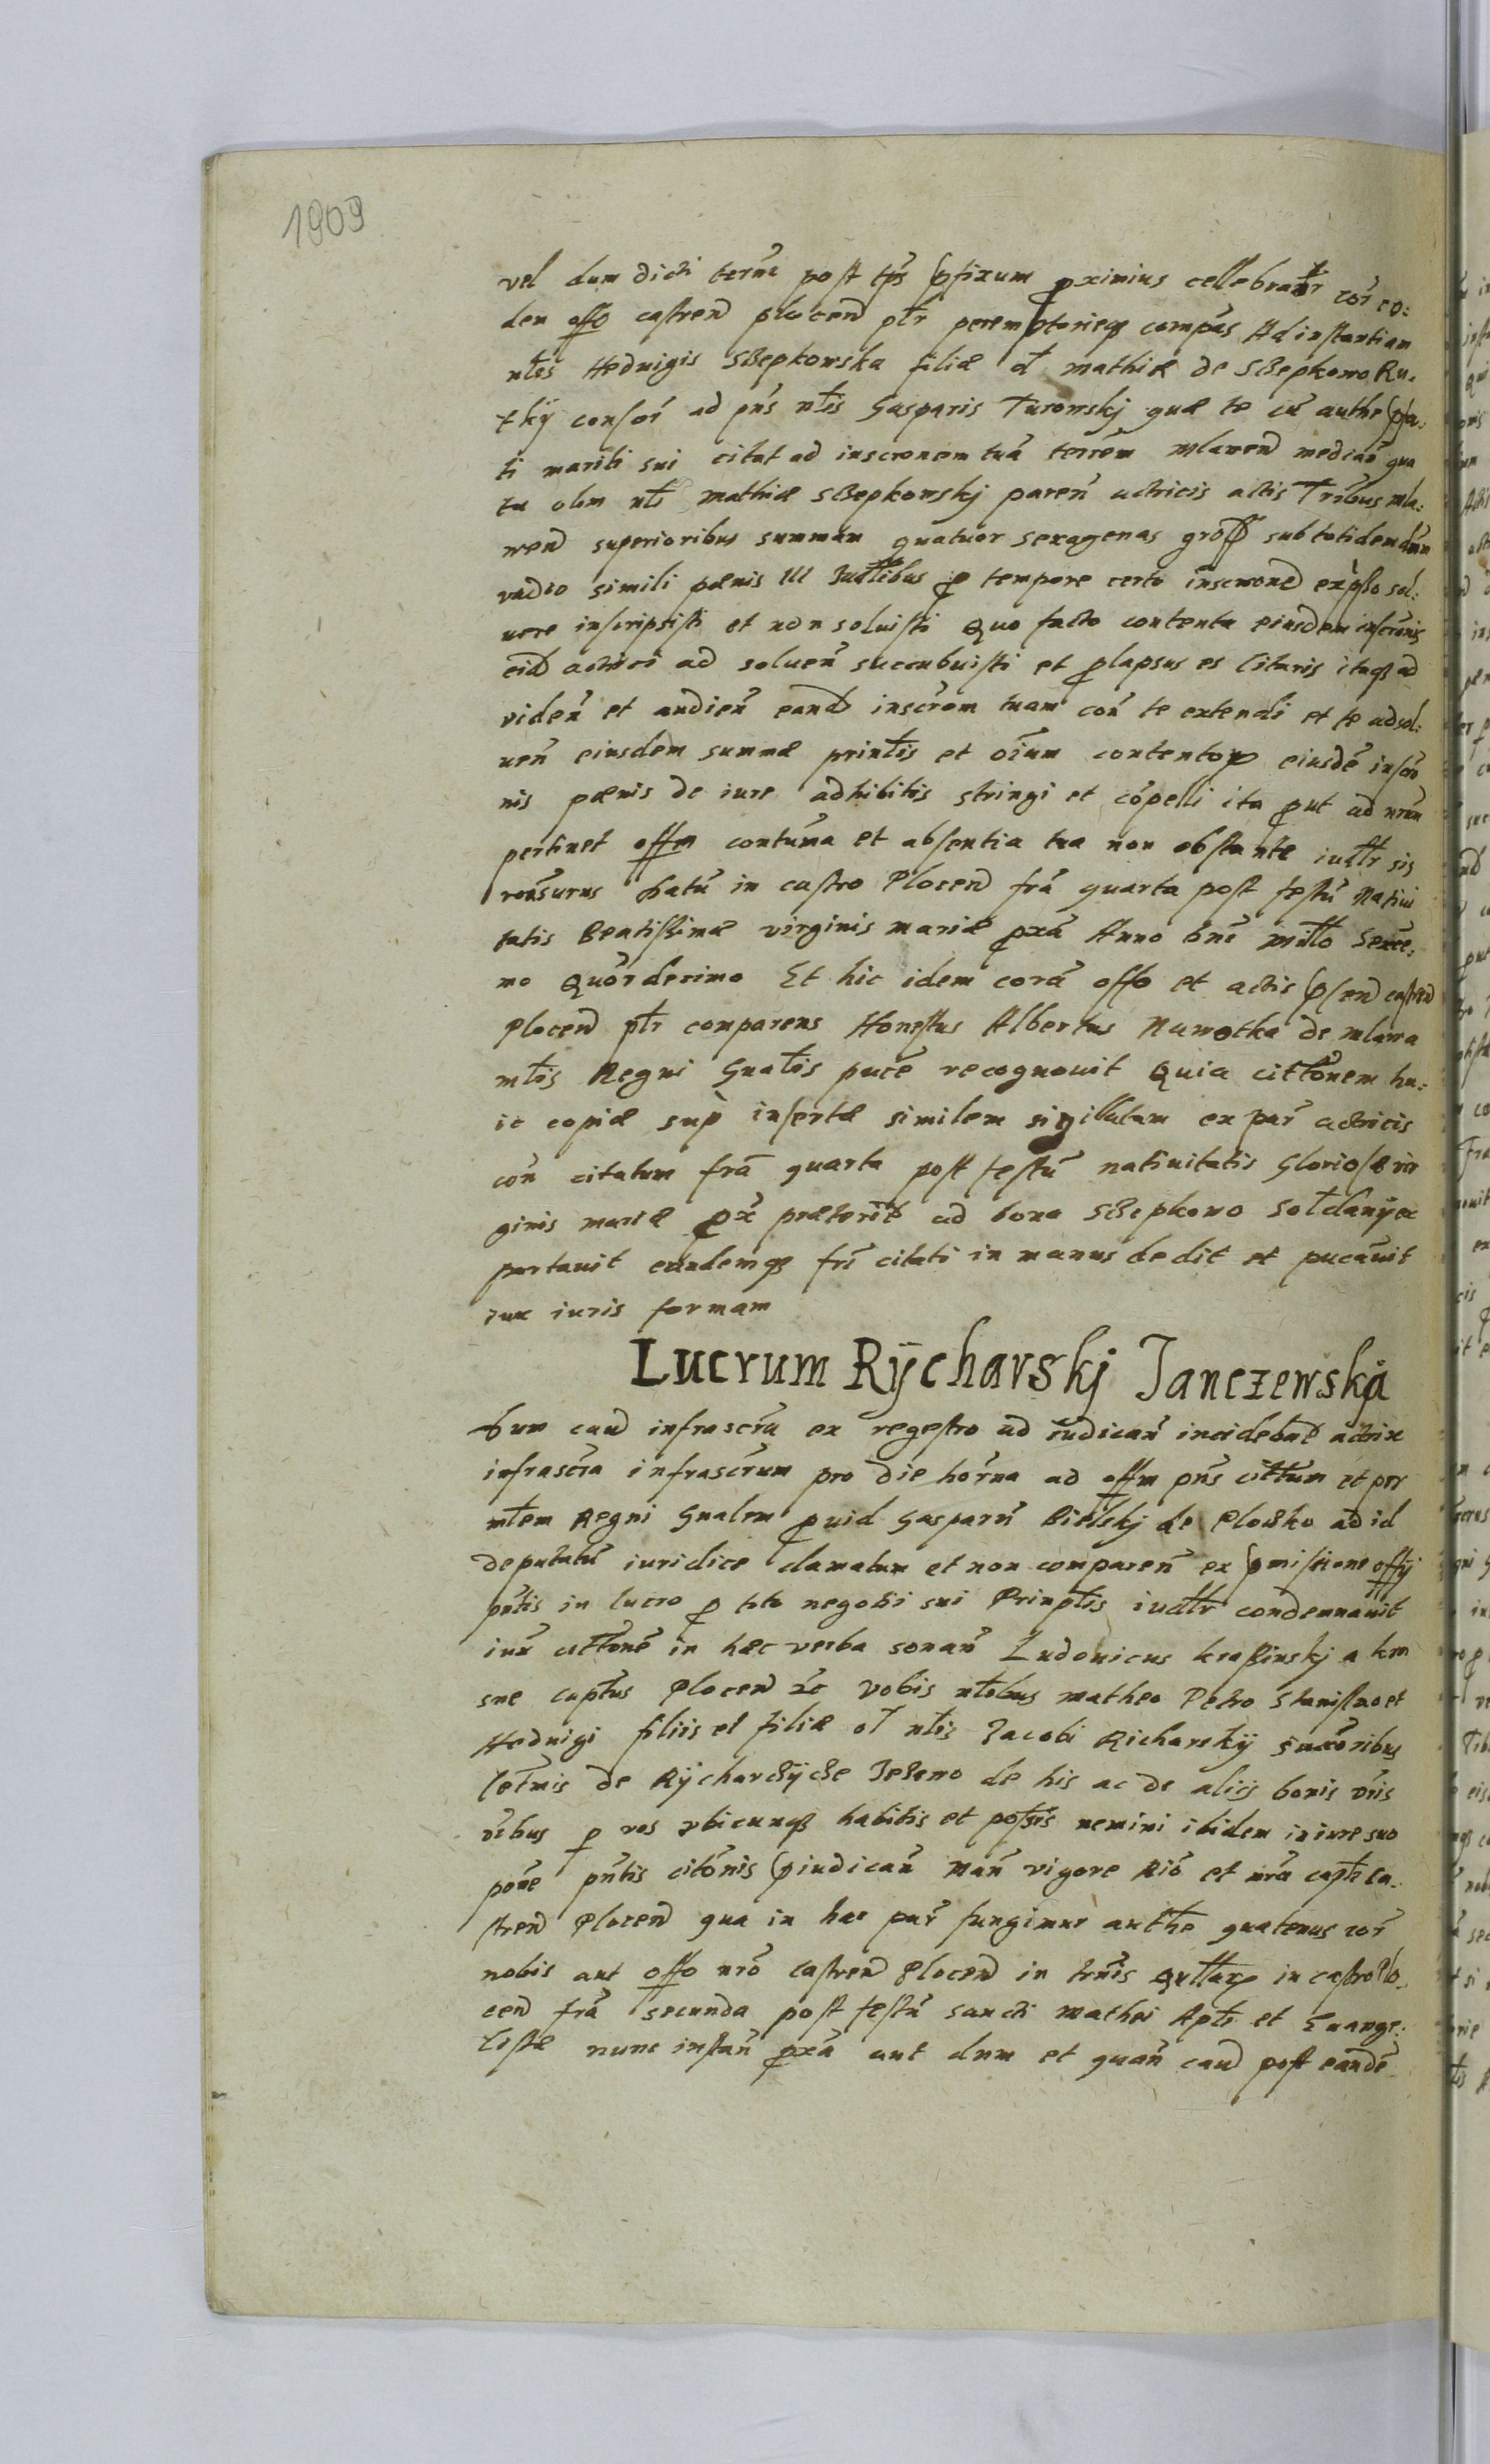 1909
vel dum dicti term̃i post tp̃s p̱fixum p̱ximius cellebrabr̃ cor̃ eo:
dem offo castreñ ploceñ pl̃r peremptorieqꝫ compãs Ad instantiam
nt̃is Hedwigis Sczepkowska filiæ ol̃ mathiæ de Sczepkowo Ru:
tkÿ consor̃ ad pñs nt̃lis Gasparis Turowskj quæ te cũ authe p̱fa:
ti mariti sui citat ad inscronem tuã terrẽm Mlaweñ medcañ qua
tu olim nt̃li Mathiæ Sczepkowskj pareñ actricis actis Tribus mla:
weñ superioribus summam quatuor sexagenas gross sub totidem dñm
vadio simili pœnis III Iudl̃ibus p̱ tempore certo inscrone expsso sol:
uere inscripsisti et non soluisti Quo facto contenta eiusdem inscronis
eid̃ actrici ad soluen̄ succubuisti et p̱lapsus es Citaris itaqꝫ ad
videñ et audieñ eand̃ inscrom tuam coñ te extendi et te ad sol:
ueñ eiusdem summæ printl̃is et oĩum contentoꝝ eiusdẽ inscro
nis pœnis de iure adhibitis stringi et cõpelli ita p̱ut ad nrũm
pertinet offm contuma et absentia tua non obstante iudl̃r sis
ronsurus Datũ in castro Ploceñ frã quarta post festũ Natiui
tatis Beatissimæ virginis mariæ p̱xã Anno Dnĩ Mil̃lo Sexce:
mo Quõrdecimo Et hic idem corã offo et actis p̱señ castreñ
Ploceñ pl̃r comparens Honestus Albertus Nawotka de mlawa
ml̃is Regni Gnal̃is pucẽ recognouit Quia cittõnem hu:
ic copiæ sup̱ insertæ similem sigillatam ex par̃ actricis
coñ citatum frã quarta post festũ natiuitatis Gloriosæ vir
ginis mariæ p̱x̃ præterit̃ ad bona Sczepkowo Soldanÿ ex
portauit eandemqꝫ frĩ citati in manus dedit et pucãuit
iux iuris formam
Lucrum Rÿcharskj Janczewska
Dum caus̃ infrascrĩa ex regestro ad iudicañ incidebat actrix
infrascrĩa infrascrĩum pro die hõrna ad offm pñs cittũm et per
ml̃em Regni Gnalem p̱uid Gasparũ Bielskj de Plocsko ad id
deputatũ iuridice clamatum et non compareñ ex p̱missione offÿ
pñtis in lucro p̱ toto negotii sui Prinpl̃is iudl̃r condemnauit
iux̃ cittõnẽ in hæc verba sonañ Ludouicus krassinskj a kra
sne captus Ploceñ &c Vobis ntl̃ibus matheo Petro Stanislao et
Hedvigi filiis et filiæ ol̃ nt̃lis Jacobi Richarskÿ suc̃oribus
leĩmis de Rÿcharcÿcze Jeżewo de his ac de aliis bonis vr̃is
oĩbus p̱ vos vbicunqꝫ habitis et possis nemini ibidem in iure suo
põne pñtis citõnis p̱iudicañ Mañ vigore Rio et nrã capt̃e ca:
streñ Ploceñ qua in hac par̃ fungimur authe quatenus cor̃
nobis aut offo nrõ castreñ Ploceñ in trm̃is Qrllaꝝ in castro Plo:
ceñ frã secunda post festũ Sancti Mathei Apl̃i et Euange:
listæ nunc instañ p̱xã aut dum et quañ caus̃ post eandẽ